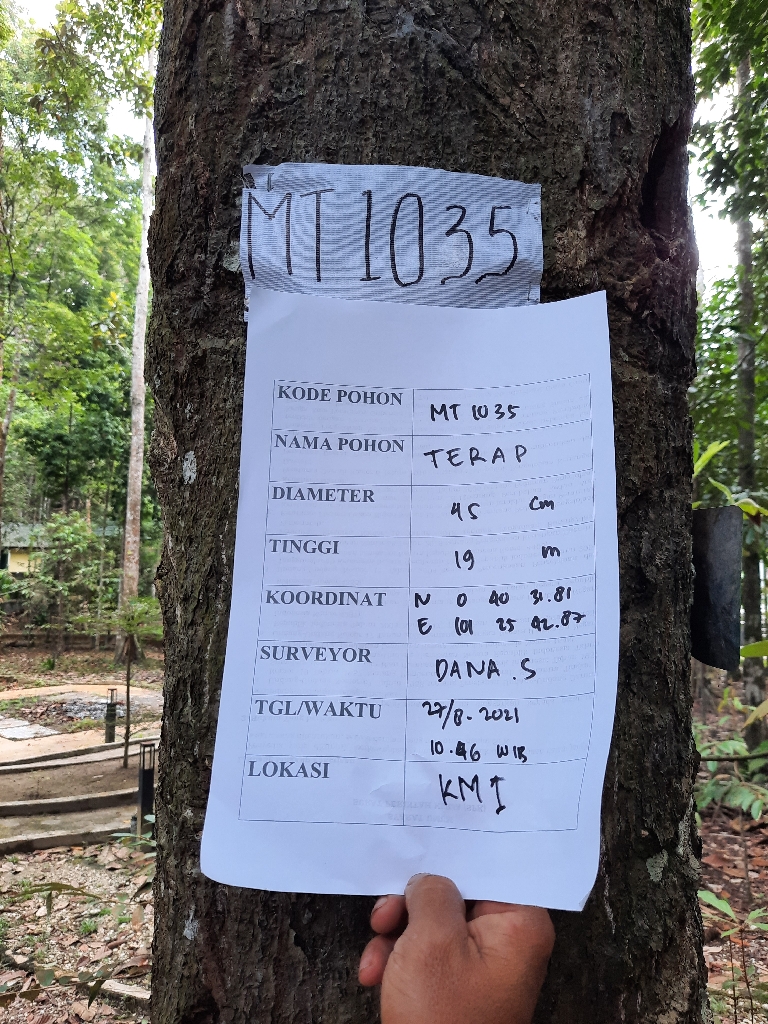 MT 1035
KODE POHON MT 1035
NAMA POHON TERAP
DIAMETER 45 Cm
TINGGI 19 m
KOORDINAT N 0 40 31.81
E 101 25 42.87
SURVEYOR DANA.S
TGL/WAKTU 27/8-2021
10.46 WIB
LOKASI KMI